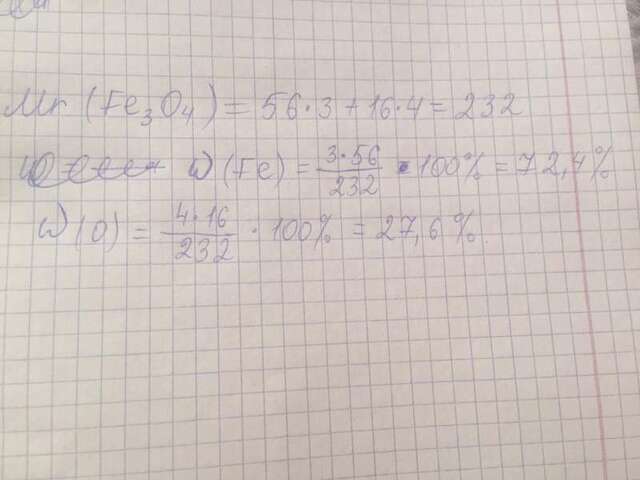 Mr (Fe₃O₄) = 56·3 + 16·4 = 232
W (Fe) = 3·56/232 · 100% = 72,4%
W (O) = 4·16/232 · 100% = 27,6%.